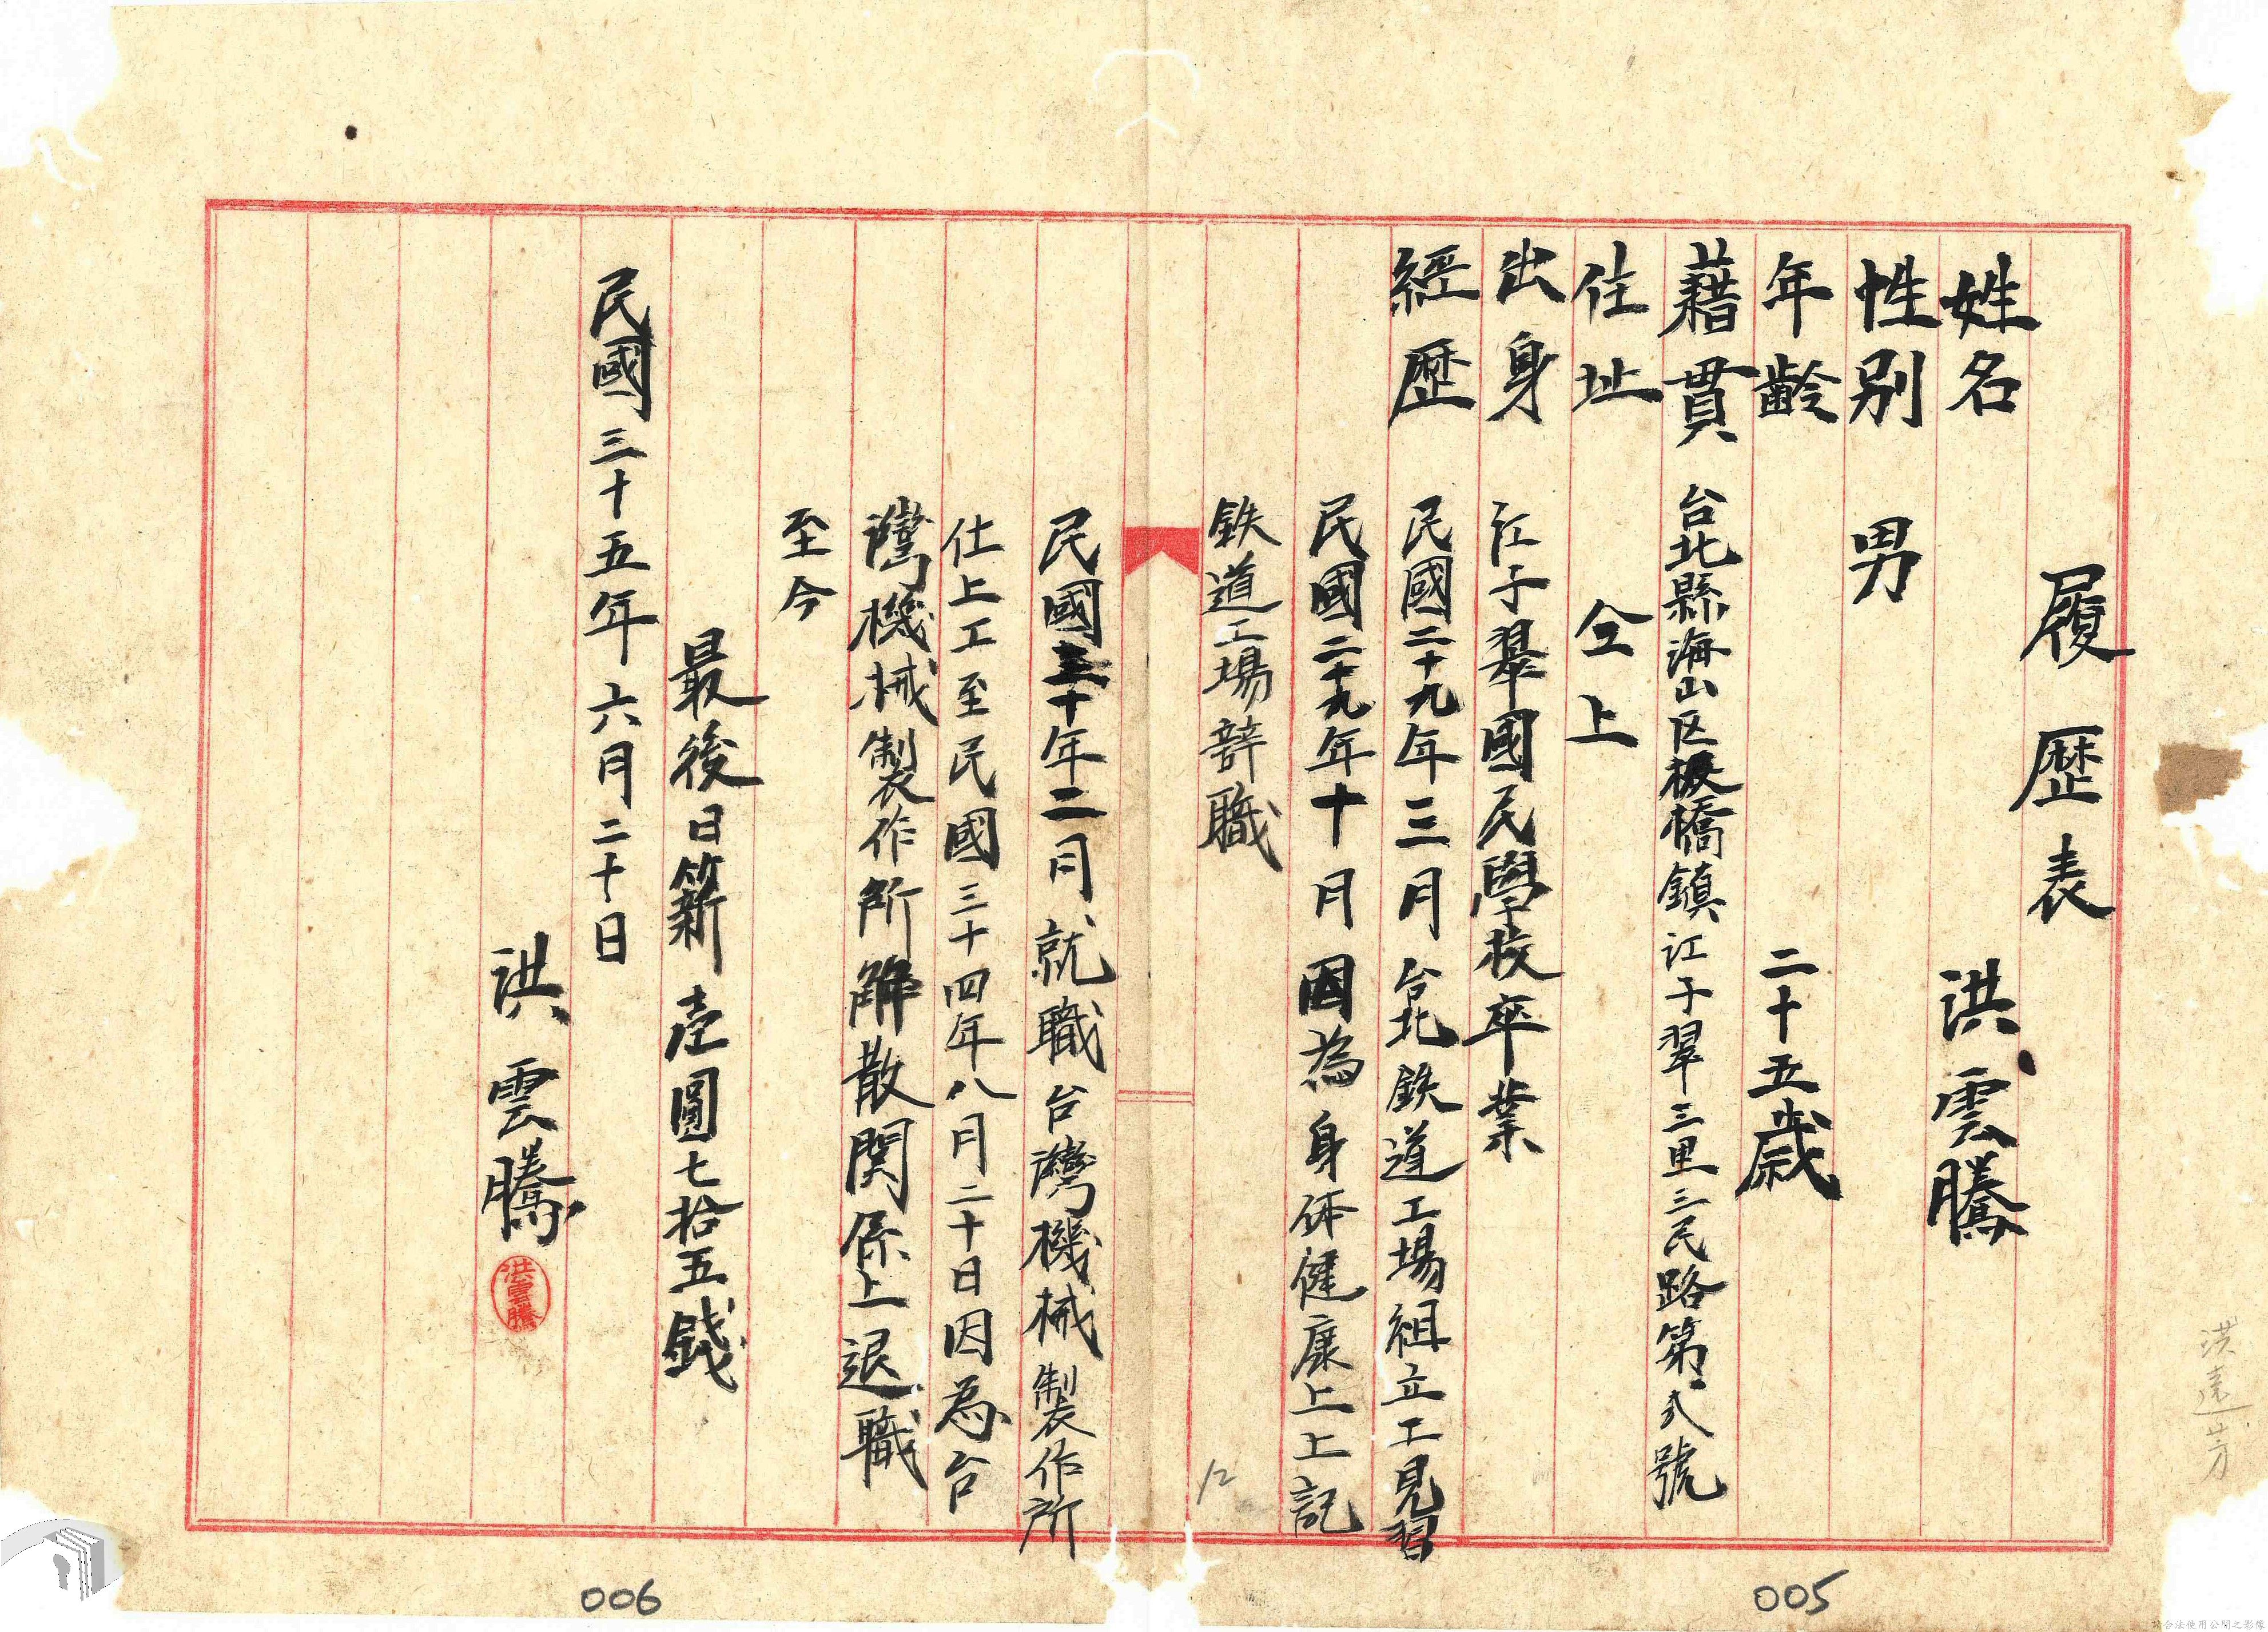 履歷表
姓名 洪雲騰
性別 男
年齡 二十五歲
藉貫 台北縣海山区板橋鎮江子翠三里三民路第弍號
住址 仝上
出身 江子翠國民學校卒業
經歷 民國二十九年三月台北鉄道工場組立工見習
民國二十九年十月因為身体健康上上記
鉄道工場辞職
民國三十年二月就職台灣機械製作所
仕上工至民國三十四年八月二十日因為台
灣機械製作所解散関係上退職
至今
最後日薪壱圓七拾五錢
民國三十五年六月二十日
洪雲騰
洪雲騰
洪遠芳
12
005
006